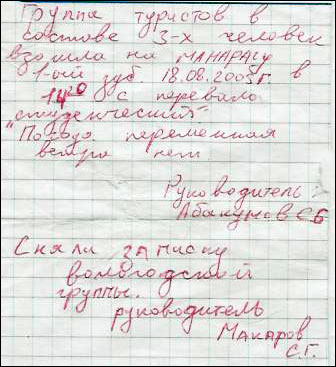 Группа туристов в
составе 3-х человек
взошла на МАНАРАГУ
1-ый зуб. 18.08.2005г. в
14²⁰ с перевала
"студенческий"
Погода переменная
ветра нет
Руководитель
Абакумов С Б
Сняли записку
вологодской
группы.
руководитель
Макаров
С.Г.